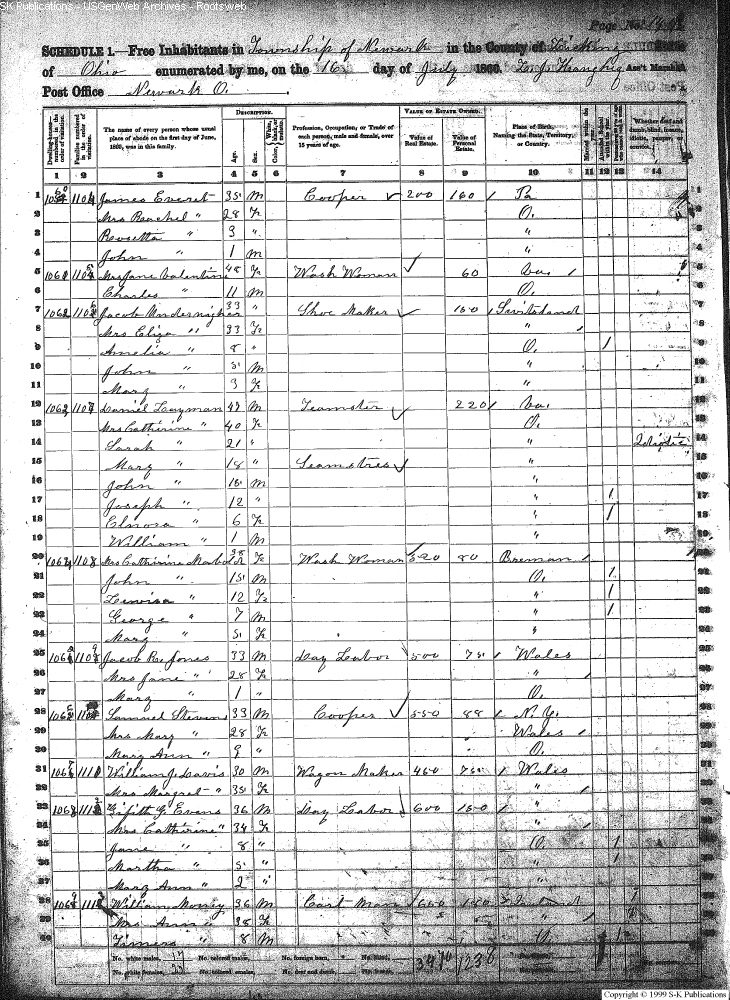 S-K Publications - USGenWeb Archives - Rootsweb
Page No.
SCHEDULE 1.—Free Inhabitants in Township of Newark in the County of Licking State
of Ohio enumerated by me, on the 16 day of July 1860. Ass't Marshal
Post Office Newark O.
Dwelling-houses numbered in the order of visitation.
Families numbered in the order of visitation.
The name of every person whose usual place of abode on the first day of June, 1860, was in this family.
DESCRIPTION.
Age.
Sex.
Color, White, black, or mulatto.
Profession, Occupation, or Trade of each person, male and female, over 15 years of age.
VALUE OF ESTATE OWNED.
Value of Real Estate.
Value of Personal Estate.
Place of Birth, Naming the State, Territory, or Country.
Married within the year.
Attended School within the year.
Whether deaf and dumb, blind, insane, idiotic, pauper, or convict.
1 2 3 4 5 6 7 8 9 10 11 12 13 14
1 James Everet 35 M Cooper 200 160 Pa 1
2 Mrs Rachel " 28 F O. 2
3 Rosetta " 3 " " 3
4 John " 1 M " 4
5 1061 Mrs Jane Valentine 48 F Wash Woman 60 Va. 5
6 Charles " 11 M O. 6
7 1062 Jacob 33 " Shoe Maker 150 Switzland 7
8 Mrs Eliza " 33 F " 8
9 Amelia " 8 " O. 1 9
10 John " 5 M " 10
11 Mary " 3 F " 11
12 1063 1107 Daniel Layman 47 M Teamster 220 Va. 12
13 Mrs Catherine " 40 F O. 13
14 Sarah " 21 " " Idiotic 14
15 Mary " 18 " Seamstres " 15
16 John " 16 M " 16
17 Joseph " 12 " " 1 17
18 Elnora " 6 F " 1 18
19 William " 1 M " 19
20 1064 1108 Mrs Catherine 38 F Wash Woman 320 80 Bremen 20
21 John " 15 M O. 1 21
22 Lewisa " 12 F " 1 22
23 George " 7 M " 1 23
24 Mary " 5 F " 24
25 1065 1109 Jacob R. Jones 33 M Day Labor 500 75 Wales 25
26 Mrs Jane " 28 F " 26
27 Mary " 1 " O. 27
28 Samuel Stevens 33 M Cooper 550 88 N.Y. 28
29 Mrs Mary " 28 F Wales 29
30 Mary Ann " 9 " O. 30
31 1067 1111 William J. Davis 30 M Wagon Maker 450 75 Wales 31
32 Mrs Margret " 35 F " 32
33 1068 1112 Grifith G. Evans 36 M Day Labor 600 150 " 33
34 Mrs Catherine " 34 F " 34
35 Jane " 8 " O. 1 35
36 Martha " 5 " " 1 36
37 Mary Ann " 2 " " 37
38 1069 1113 William 36 M Cart Man 600 38
39 Mrs Ann " 38 F " 39
40 " 8 M O. 1 40
No. white males, No. colored males, No. foreign born, No. blind,
No. white females, No. colored females, No. deaf and dumb, No. insane,
3470 1238
Copyright © 1999 S-K Publications